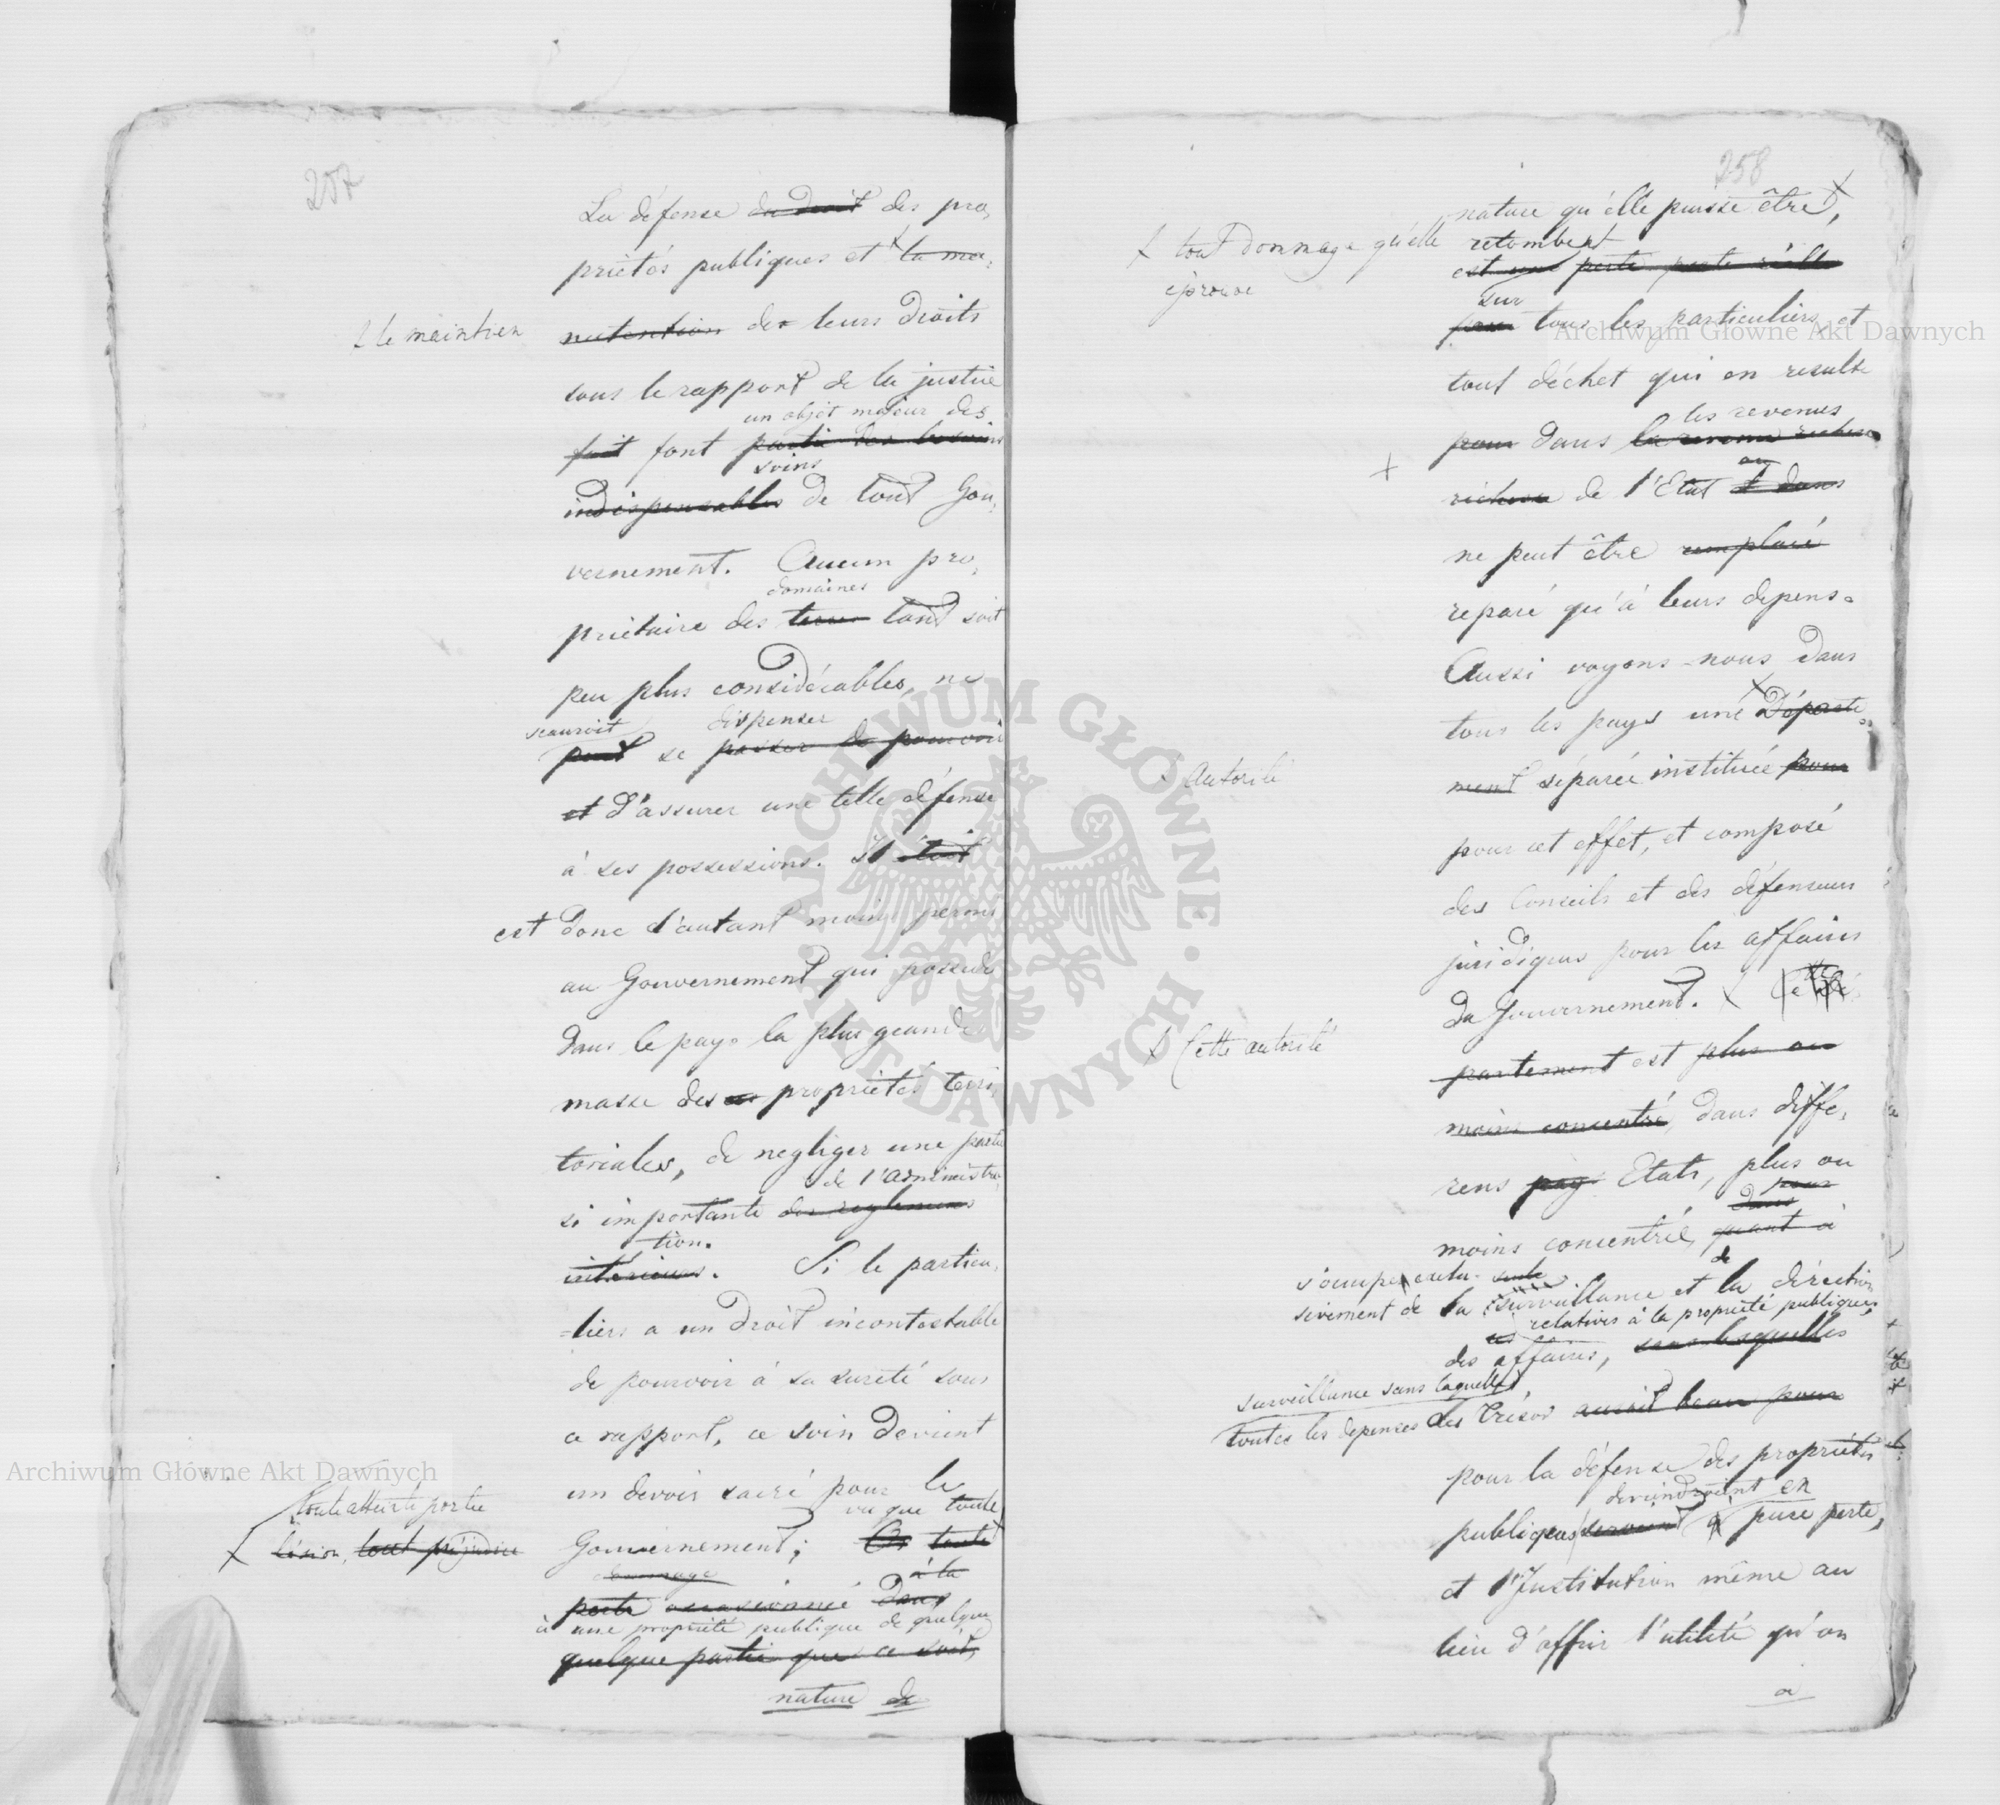 257
La défense du droit des pro,
priétés publiques et la ma,
+ le maintien
nutention de leurs droits
sous le rapport de la justice
un objet majeur des
fait font partie des besoins
soins
indispensables de tout Gou,
vernement. Aucun pro,
domaines
priétaire des terres tant soit
peu plus considérables, ne
sauroit dispenser
peut se passer de pouvoir
et d'assurer une telle défense
à ses possessions. Il étoit
est donc d'autant moins permis
au Gouvernement qui possede
dans le pays la plus grande
masse des propriétés terri,
toriales, de negliger une partie
de l'administra,
si importante des reglemens
tion.
intérieurs. Si le particu,
=lier a un droit incontestable
de pourvoir à sa sureté sous
ce rapport, ce soin devient
un devoir sacré pour le
vu que toute
toute atteinte portée
+ lésion, tout préjudice
Gouvernement; Or toute
dommage à la
perte occasionnée dans
à une propriété publique de quelque
quelque partie que ce soit,
nature de
258
nature qu'elle puisse être,
+ tout dommage qu'elle
éprouve
retombent
est une perte perte réelle
sur
pour tous les particuliers, et
tout déchet qui en resulte
les revenus
pour dans la revenu richesse
au
richesse de l'Etat et dans
ne peut être remplacé
reparé qu'à leurs depens.
Aussi voyons-nous dans
tous les pays une Départe
Autorité
ment séparée instituée pour
pour cet effet, et composé
des Conseils et des défenseurs
juridiques pour les affaires
du Gouvernement. + Ce Dé
+ Cette autorité
partement est plus ou
moins concentré, dans diffé,
rens pays Etats, plus ou
pour
dans
moins concentré, quant à
s'occupe exclu- seule de
sivement de la surveillance et la direction
relatives à la propriété publique,
des affaires, sans lesquelles
surveillance sans laquelle
toutes les depenses des Tresor auroit beau pour
pour la défense des propriétés
deviendroient en
publiques seroient à pure perte,
et l'Institution même au
lieu d'offrir l'utilité qu'on
a
Archiwum Główne Akt Dawnych
Archiwum Główne Akt Dawnych
ARCHIWUM GŁÓWNE · AKT DAWNYCH ·